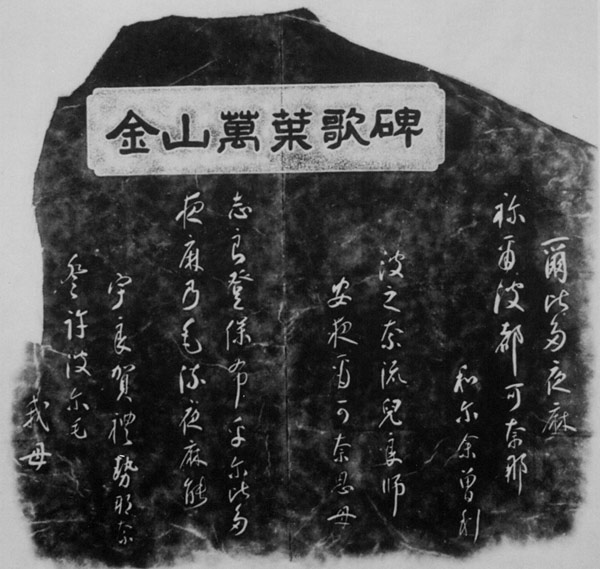 金山萬葉歌碑
爾比多夜麻
祢爾波都可奈那
和尔余曾利
波之奈流兒良師
安夜爾可奈思母
志良登保布乎尔比多
夜麻乃毛流夜麻能
宇良賀禮勢那奈
登許波尔毛
我母